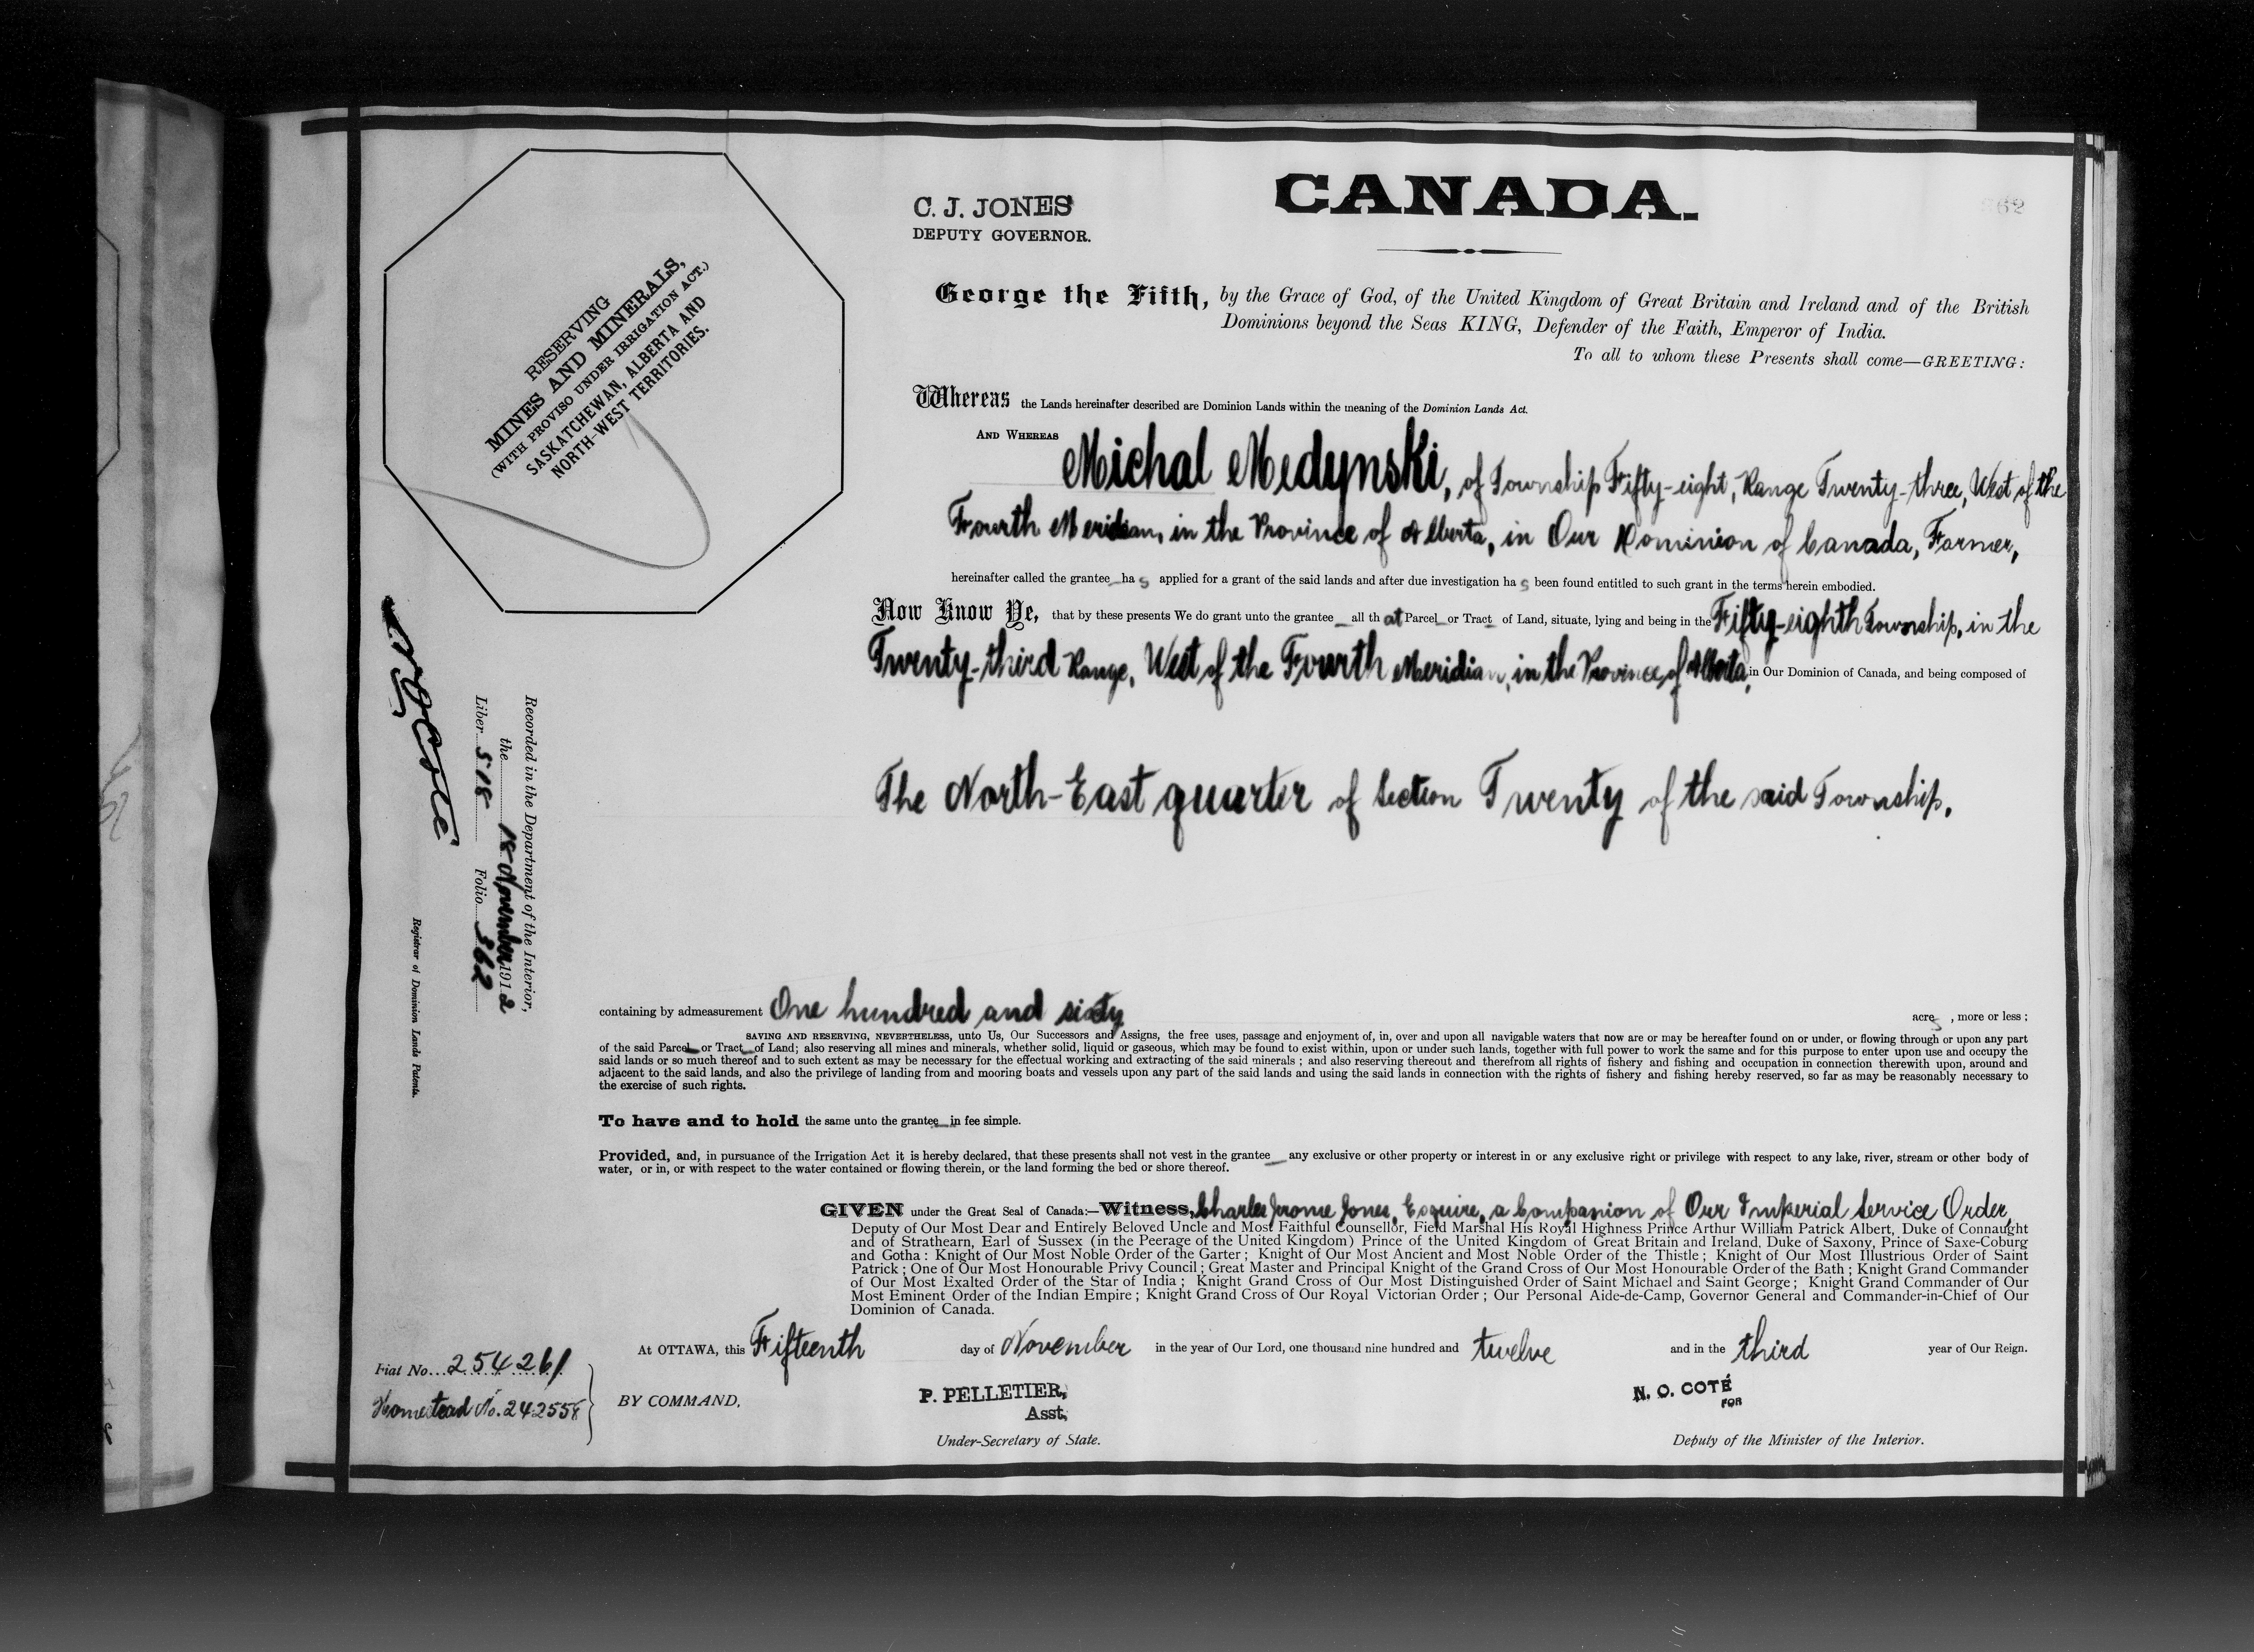 C. J. JONES
DEPUTY GOVERNOR.
CANADA.
362
RESERVING
MINES AND MINERALS,
(WITH PROVISO UNDER IRRIGATION ACT.)
SASKATCHEWAN, ALBERTA AND
NORTH-WEST TERRITORIES.
George the Fifth, by the Grace of God, of the United Kingdom of Great Britain and Ireland and of the British
Dominions beyond the Seas KING, Defender of the Faith, Emperor of India.
To all to whom these Presents shall come—GREETING:
Whereas the Lands hereinafter described are Dominion Lands within the meaning of the Dominion Lands Act.
AND WHEREAS Michal Medynski, of Township Fifty-eight, Range Twenty-three, West of the
Fourth Meridian, in the Province of Alberta, in Our Dominion of Canada, Farmer,
hereinafter called the grantee_ has applied for a grant of the said lands and after due investigation has been found entitled to such grant in the terms herein embodied.
Now Know Ye, that by these presents We do grant unto the grantee_ all that Parcel_ or Tract_ of Land, situate, lying and being in the Fifty-eighth Township, in the
Twenty-third Range, West of the Fourth Meridian, in the Province of Alberta, in Our Dominion of Canada, and being composed of
The North-East quarter of Section Twenty of the said Township,
Recorded in the Department of the Interior,
the 18 November 1912
Liber 518 Folio 362
Registrar of Dominion Lands Patents.
containing by admeasurement One hundred and sixty acres, more or less;
SAVING AND RESERVING, NEVERTHELESS, unto Us, Our Successors and Assigns, the free uses, passage and enjoyment of, in, over and upon all navigable waters that now are or may be hereafter found on or under, or flowing through or upon any part
of the said Parcel_ or Tract_ of Land; also reserving all mines and minerals, whether solid, liquid or gaseous, which may be found to exist within, upon or under such lands, together with full power to work the same and for this purpose to enter upon use and occupy the
said lands or so much thereof and to such extent as may be necessary for the effectual working and extracting of the said minerals; and also reserving thereout and therefrom all rights of fishery and fishing and occupation in connection therewith upon, around and
adjacent to the said lands, and also the privilege of landing from and mooring boats and vessels upon any part of the said lands and using the said lands in connection with the rights of fishery and fishing hereby reserved, so far as may be reasonably necessary to
the exercise of such rights.
To have and to hold the same unto the grantee_ in fee simple.
Provided, and, in pursuance of the Irrigation Act it is hereby declared, that these presents shall not vest in the grantee_ any exclusive or other property or interest in or any exclusive right or privilege with respect to any lake, river, stream or other body of
water, or in, or with respect to the water contained or flowing therein, or the land forming the bed or shore thereof.
GIVEN under the Great Seal of Canada:—Witness, Charles Jerome Jones, Esquire, a Companion of Our Imperial Service Order,
Deputy of Our Most Dear and Entirely Beloved Uncle and Most Faithful Counsellor, Field Marshal His Royal Highness Prince Arthur William Patrick Albert, Duke of Connaught
and of Strathearn, Earl of Sussex (in the Peerage of the United Kingdom) Prince of the United Kingdom of Great Britain and Ireland, Duke of Saxony, Prince of Saxe-Coburg
and Gotha: Knight of Our Most Noble Order of the Garter; Knight of Our Most Ancient and Most Noble Order of the Thistle; Knight of Our Most Illustrious Order of Saint
Patrick; One of Our Most Honourable Privy Council; Great Master and Principal Knight of the Grand Cross of Our Most Honourable Order of the Bath; Knight Grand Commander
of Our Most Exalted Order of the Star of India; Knight Grand Cross of Our Most Distinguished Order of Saint Michael and Saint George; Knight Grand Commander of Our
Most Eminent Order of the Indian Empire; Knight Grand Cross of Our Royal Victorian Order; Our Personal Aide-de-Camp, Governor General and Commander-in-Chief of Our
Dominion of Canada.
At OTTAWA, this Fifteenth day of November in the year of Our Lord, one thousand nine hundred and twelve and in the third year of Our Reign.
Fiat No. 254261
Homestead No. 242558
BY COMMAND,
P. PELLETIER,
Asst.
Under-Secretary of State.
N. O. COTÉ
FOR
Deputy of the Minister of the Interior.